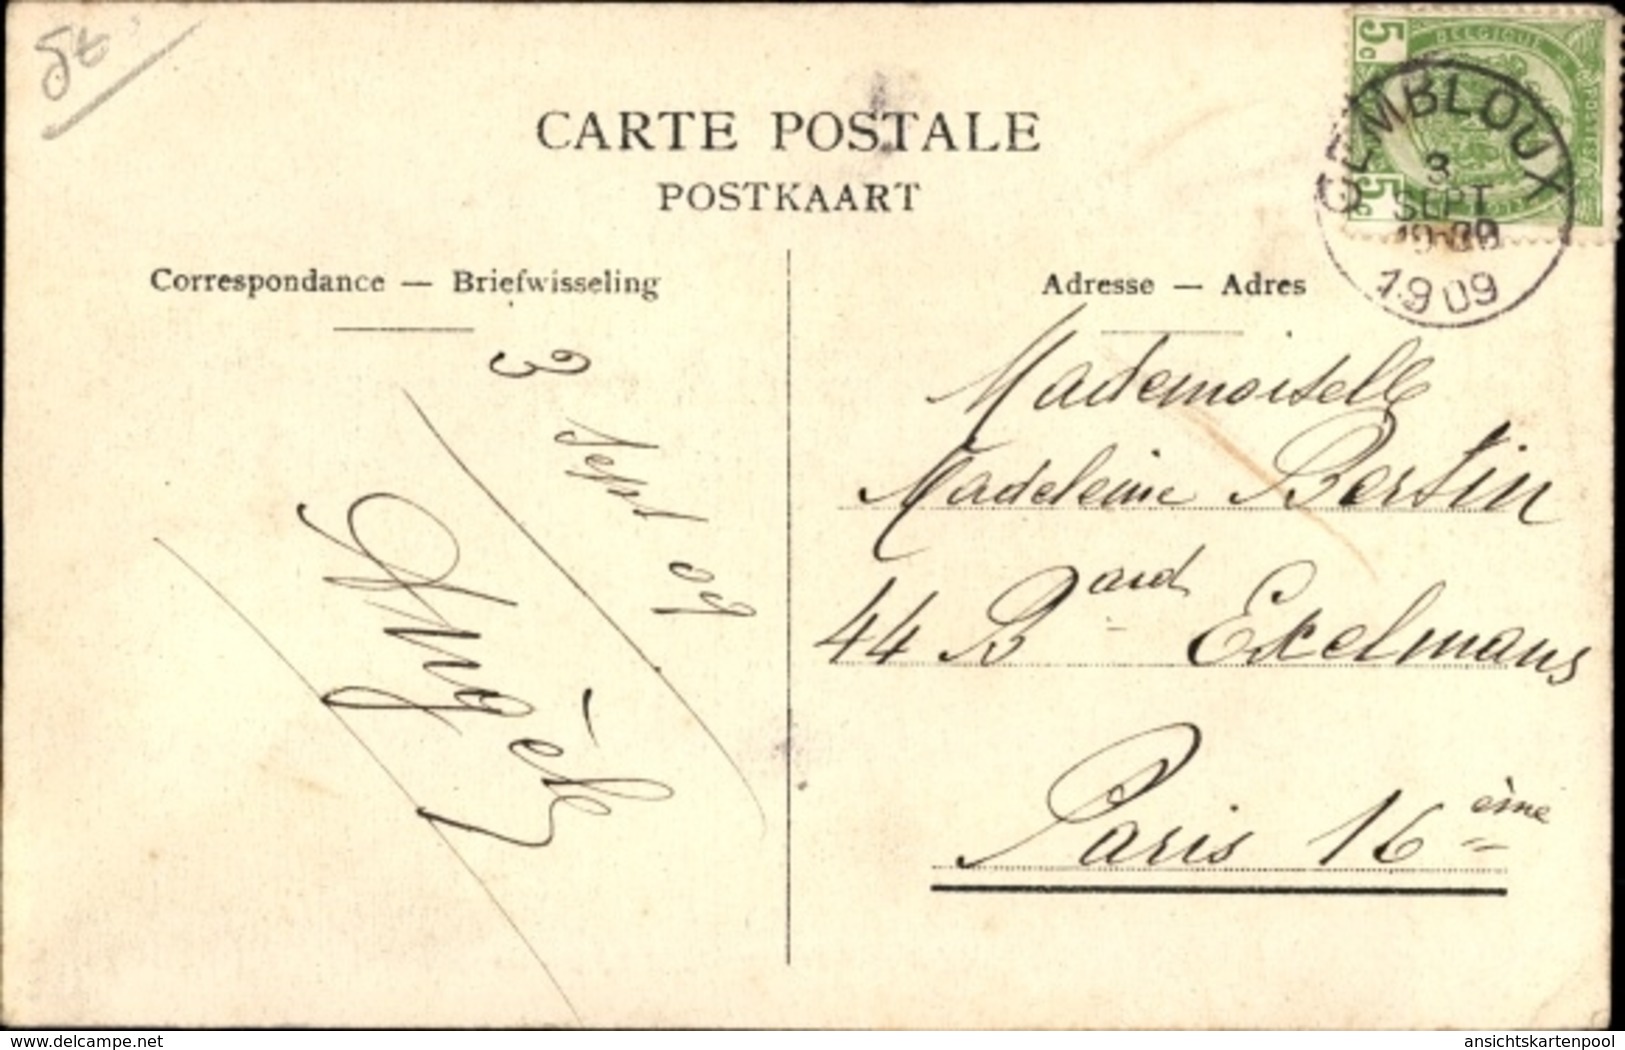 CARTE POSTALE
POSTKAART
Correspondance — Briefwisseling
Adresse — Adres
BELGIQUE
5c
POSTES
5c
GEMBLOUX
3
SEPT
1909
3 sept 09
Angèle
Mademoiselle
Madeleine Bertin
44 Bard Exelmans
Paris 16ème
www.delcampe.net
ansichtskartenpool